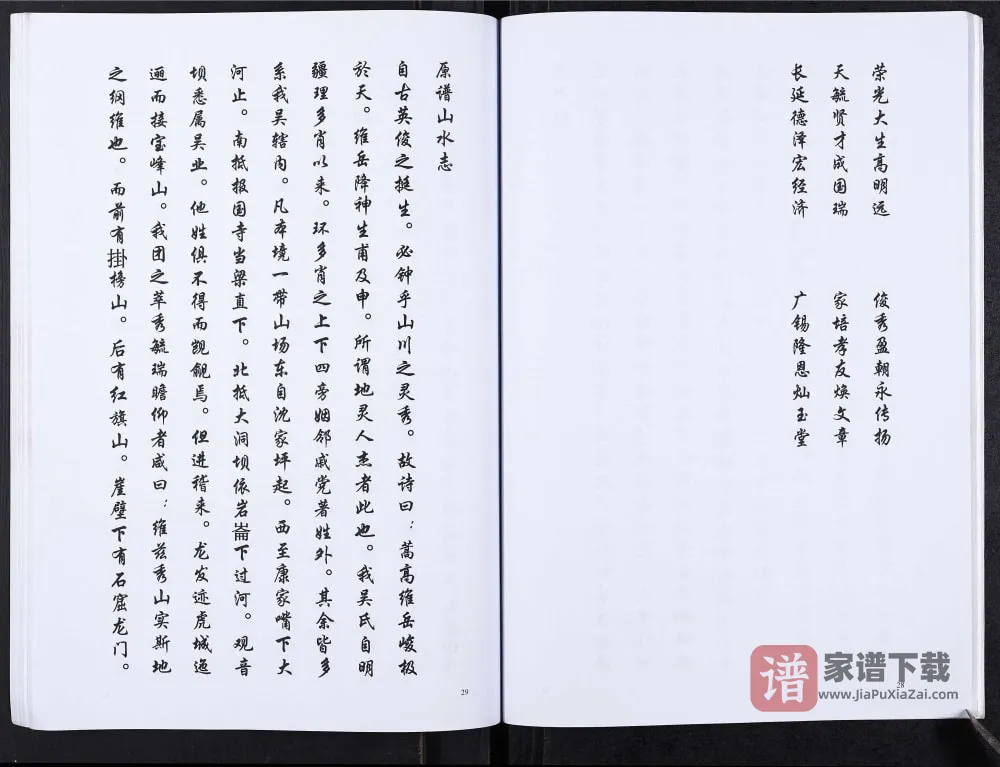 荣光大生高明远
俊秀盈朝永传扬
天毓贤才成国瑞
家培孝友焕文章
长延德泽宏经济
广锡隆恩灿玉堂
28
原谱山水志
自古英俊之挺生。必钟乎山川之灵秀。故诗曰：蒿高维岳峻极
於天。维岳降神生甫及申。所谓地灵人杰者此也。我吴氏自明
疆理多肖以来。环多肖之上下四旁姻邻戚党著姓外。其余皆多
系我吴辖内。凡本境一带山场东自沈家坪起。西至康家嘴下大
河止。南抵报国寺当梁直下。北抵大洞坝依岩崙下过河。观音
坝悉属吴业。他姓俱不得而觊觎焉。但进稽来。龙发迹虎城迤
逦而接宝峰山。我团之萃秀毓瑞瞻仰者咸曰：维兹秀山实斯地
之纲维也。而前有掛榜山。后有红旗山。崖壁下有石窟龙门。
29
谱 家谱下载
www.JiaPuXiaZai.com